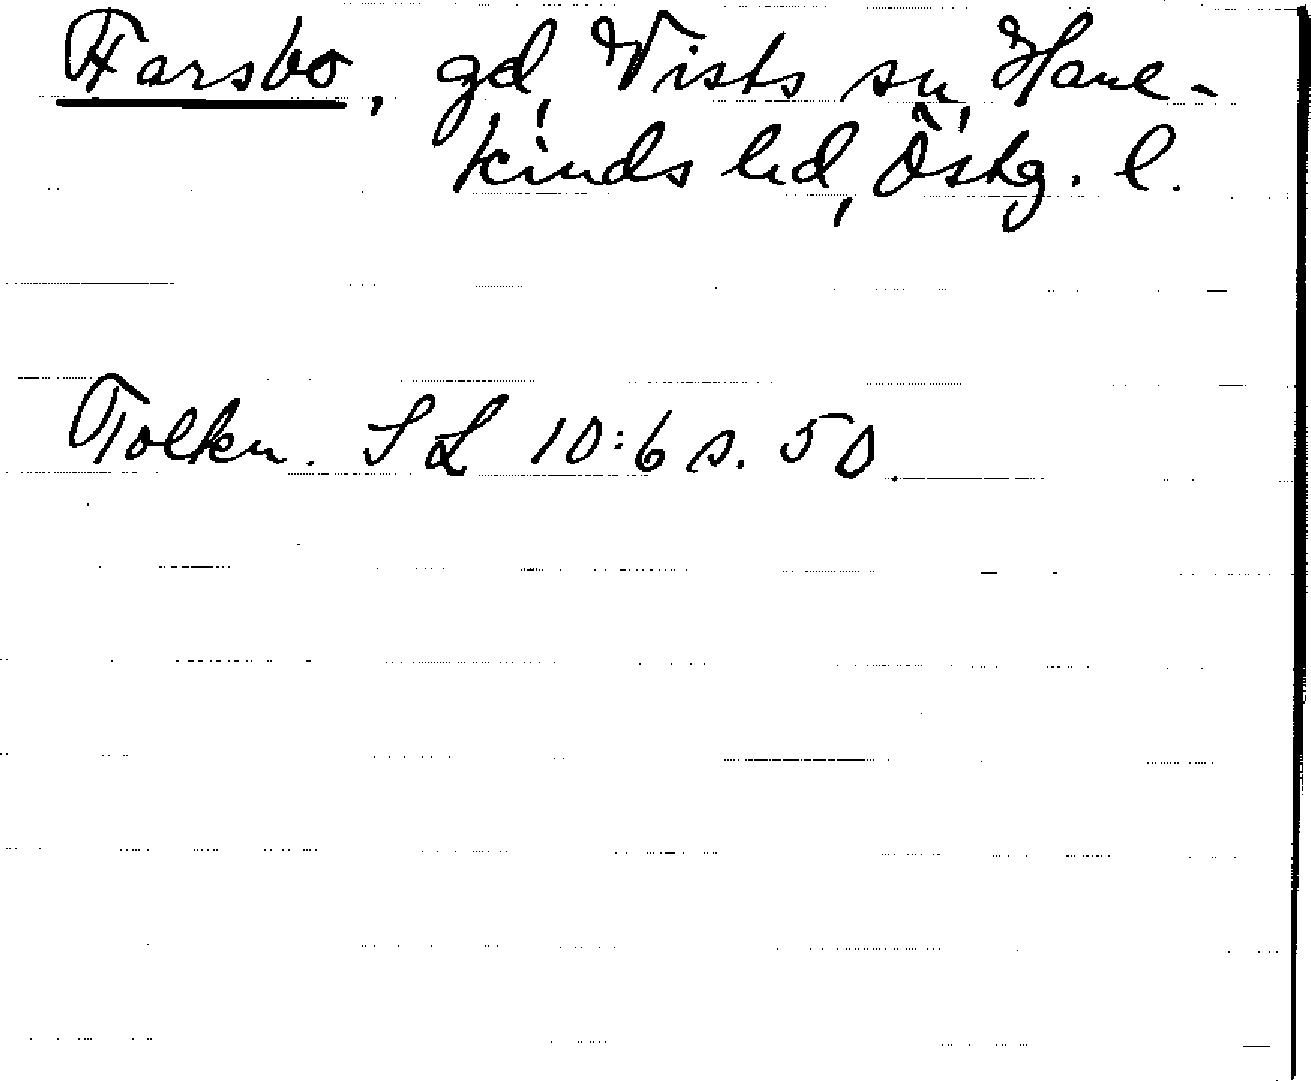 Farsbo, gd, Vists sn, Hane-
kinds hd, Östg. l.
Tolkn. SL 10:6 s. 50.